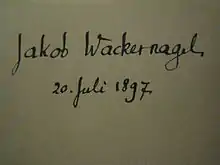 Jakob Wackernagel,
20. Juli 1897.